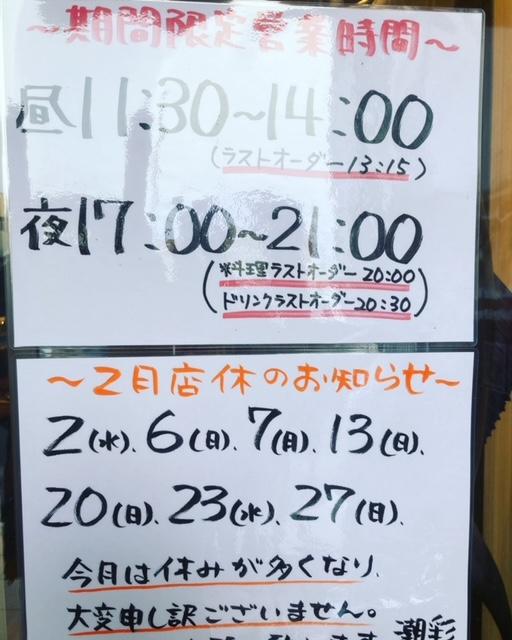 ～期間限定営業時間～
昼11:30～14:00
(ラストオーダー13:15)
夜17:00～21:00
(料理ラストオーダー20:00
ドリンクラストオーダー20:30)
～2月店休のお知らせ～
2(水)、6(日)、7(月)、13(日)、
20(日)、23(水)、27(日)、
今月は休みが多くなり、
大変申し訳ございません。
潮彩